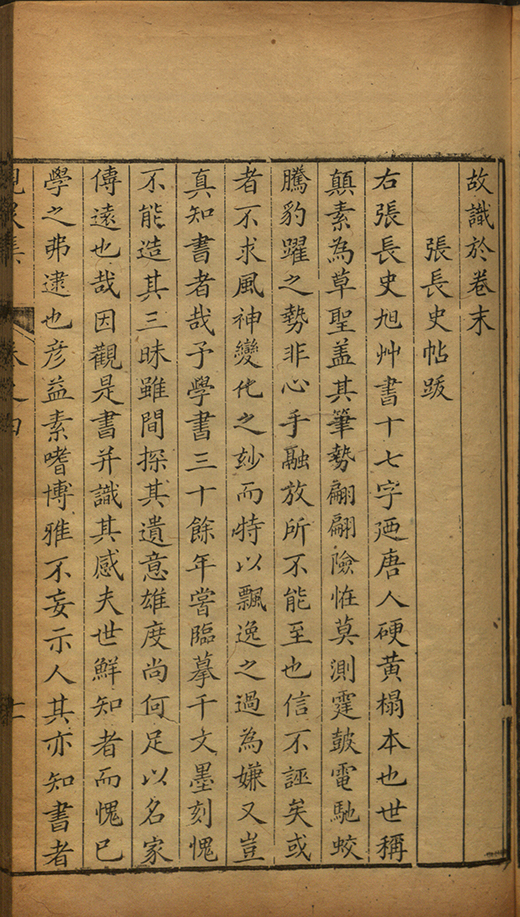 故識於卷末
張長史帖跋
右張長史旭艸書十七字廼唐人硬黄榻本也世稱
顛素為草聖盖其筆勢翩翩險恠莫測霆皷電馳蛟
騰豹躍之勢非心手融放所不能至也信不誣矣或
者不求風神變化之玅而特以飄逸之過為嫌又豈
真知書者哉予學書三十餘年嘗臨摹千文墨刻愧
不能造其三昧雖間探其遺意雄度尚何足以名家
傳遠也哉因觀是書并識其感夫世鮮知者而愧已
學之弗逮也彦益素嗜博雅不妄示人其亦知書者